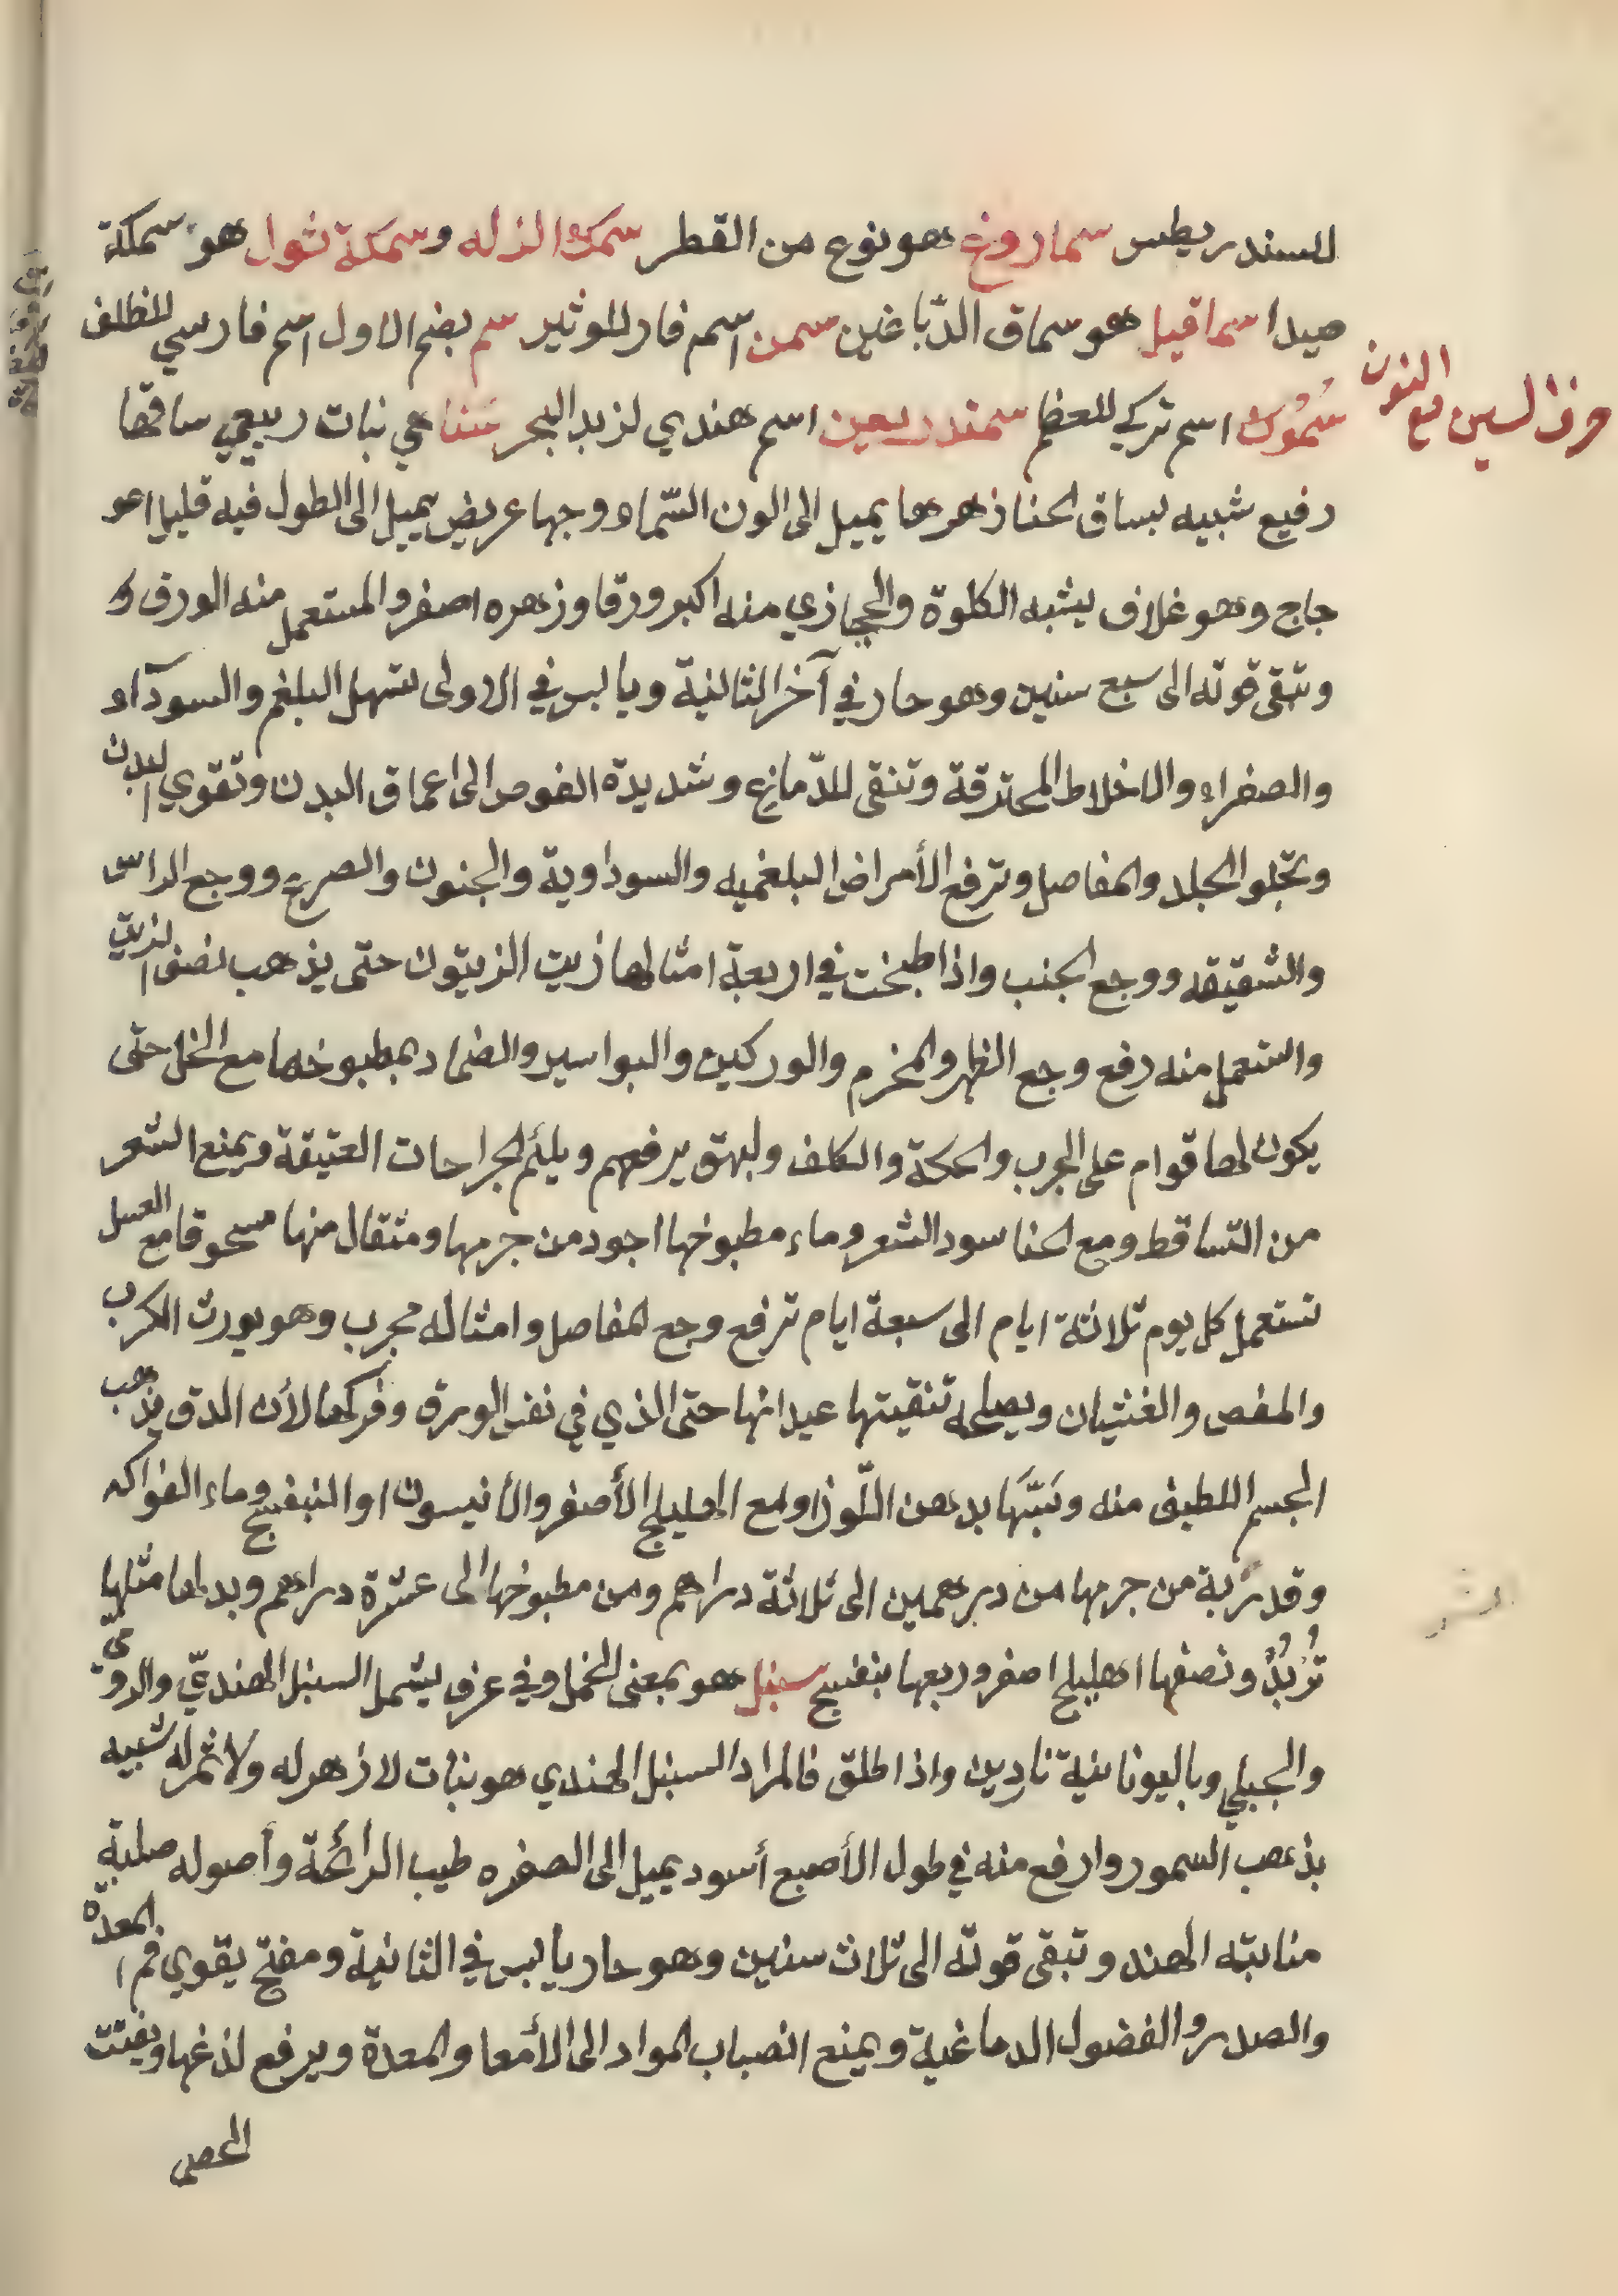 للسندريطس سماروغ هو نوع من القطر سمك الزله وسمكة ثول هو سمكة
صيدا سماقيل هو سماق الدّباغين سمن اسم فار للوثير سم بضم الاول اسم فارسي للظلف
حرف السين مع النون
سُمُوك اسم تركي للعظم سمندريعين اسم هندي لزبد البحر سَنا هي نبات ربيعي ساقها
رفيع شبيه بساق الحنا زهرها يميل الى الون السّماء ووجها عريض يميل الى الطول فيه قليل اعو
جاج وهو غلاف يشبه الكلوة والحجازي منه اكبر ورقا وزهره اصفر والمستعمل منه الورق و
وتبقى قوته الى سبع سنين وهو حار في آخر الثانية ويابس في الاولى تسهل البلغم والسودآء و
والصفراء والاخلاط المحترقة وتنقى للدّماغ وشديدة الغوص الى اعماق البدن وتقوي البدن
وتجلو الجلد والمفاصل وترفع الأمراض البلغميه والسوداوية والجنون والصرع ووجع الراس
والشقيقه ووجع الجنب واذا طبخت في اربعة امثالها زيت الزيتون حتى يذهب نصف الزيت
واستعمل منه رفع وجع الظهر والمخرم والوركين والبواسير والضماد بمطبوخها مع الخل حتى
يكون لها قوام على الجرب والحكة والكلف ولبهق يرفعهم ويلئم الجراحات العتيقة ويمنع الشعر
من التساقط ومع الحنا سود الشعر وماء مطبوخها اجود من جرمها ومثقال منها مسحوقا مع العسل
تستعمل كل يوم ثلاثة ايام الى سبعة ايام ترفع وجع المفاصل وامثاله مجرب وهو يورث الكرب
والمغص والغثيان ويصلحه تنقيتها عيدانها حتى الذي في نفس الورق وفركها لأن الدق يذهب
الجسم اللطيف منه وتبّها بدهن اللّوز او مع الهليلج الأصفر والأنيسون او البنفسج وماء الفواكه
وقد شربة من جرمها من درهمين الى ثلاثة دراهم ومن مطبوخها الى عشرة دراهم وبدلها مثلها
تُرْبُدٌ ونصفها اهليلج اصفر وربعها بنفسج سنبل هو بمعنى الخمل وفي عرف يشمل السنبل الهنديّ والروميّ
والجبلي وباليونانية نادين واذا طلق فالمراد السنبل الهندي هو نبات لا زهر له ولا ثمر له شبيه
بذعب السمور وارفع منه في طول الأصبع أسود يميل الى الصفره طيب الرائحة وأصوله صلبة
منابته الهند وتبقى قوته الى ثلاث سنين وهو حار يابس في الثانية ومفتح يقوي فم المعدة
والصدر والفضول الدماغية ويمنع انصباب المواد الى الأمعا والمعدة ويرفع لذعها ويفتت
الحصى